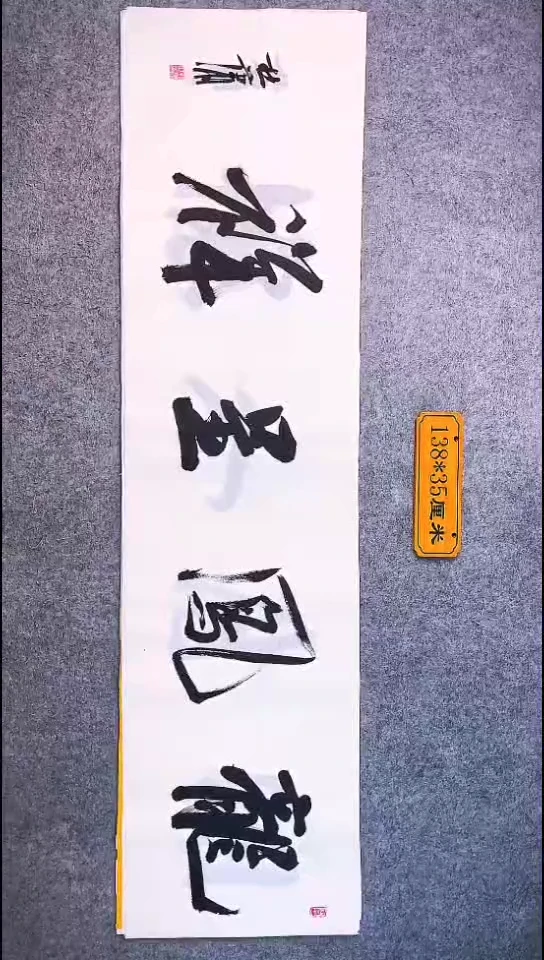 龍鳳呈祥
138*35厘米